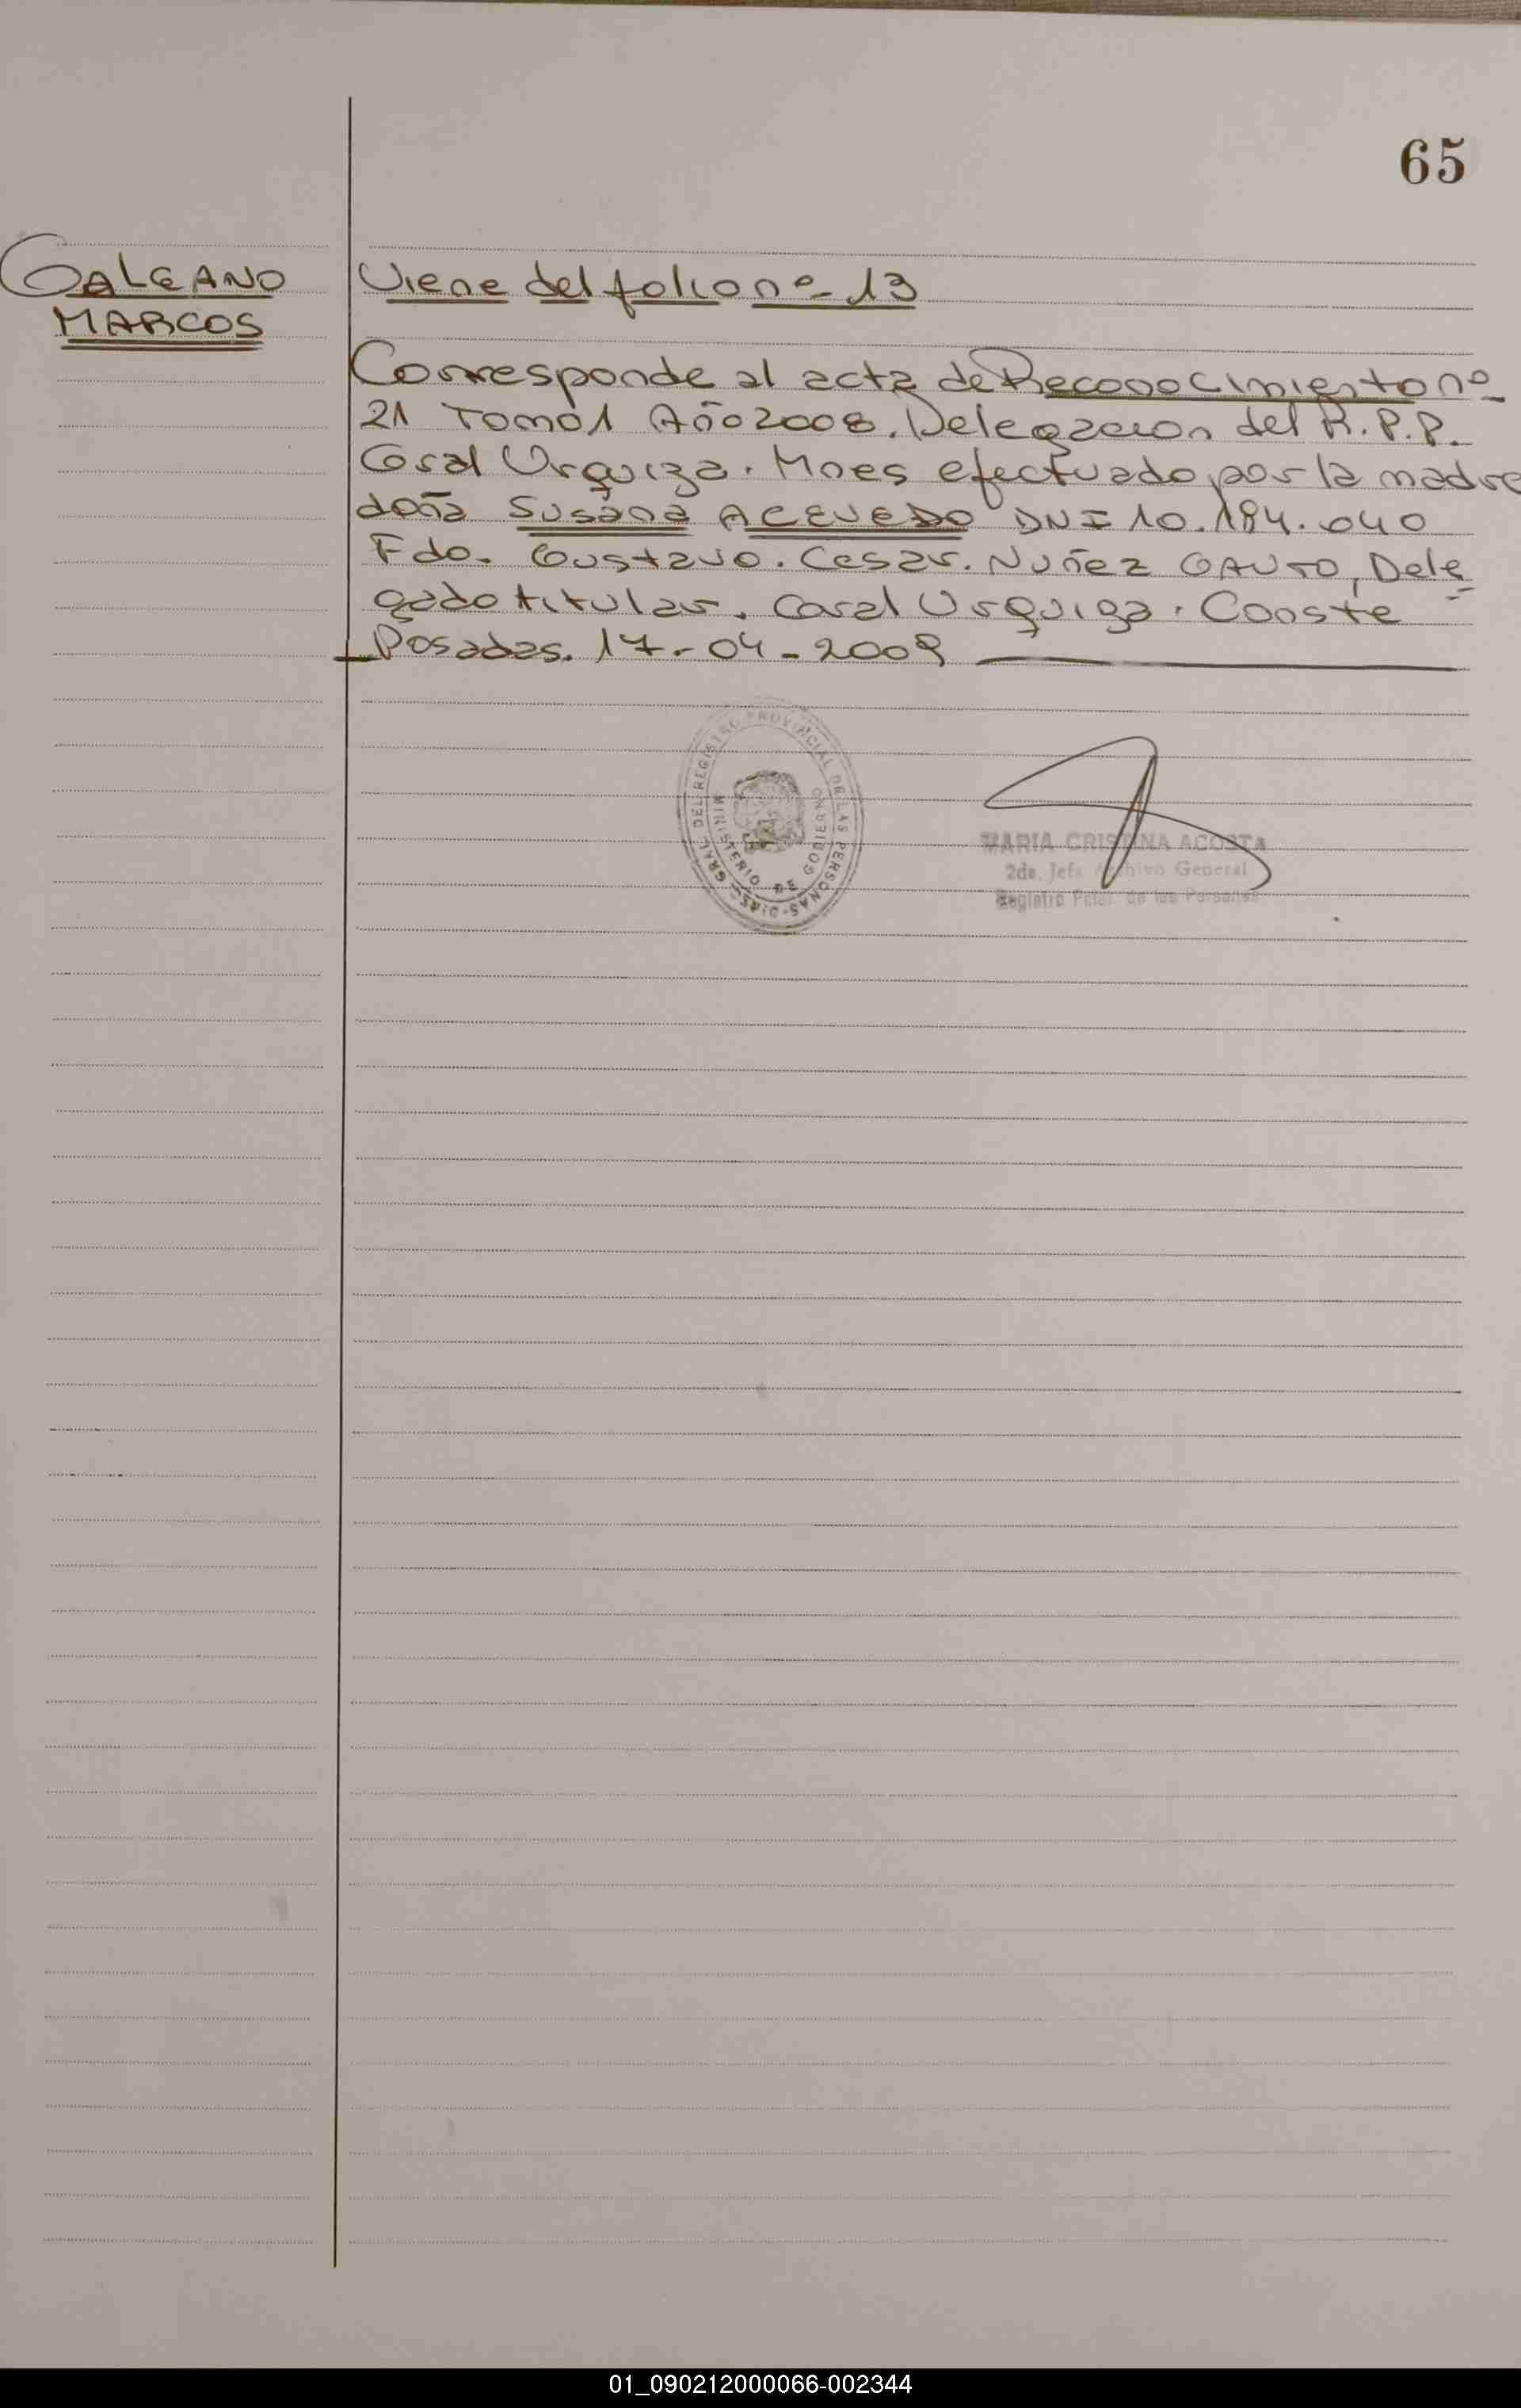 65
GALEANO
MARCOS
Viene del folio nº 13
Corresponde al acta de Reconocimiento nº
21 Tomo 1 Año 2008. Delegacion del R.P.P.
Coral Urquiza. Mnes efectuado por la madre
doña Susana ACEVEDO DNI 10.184.040
Fdo. Gustavo. Cesar. Nuñez GAUTO, Dele
gado titular. Coral Urquiza. Conste
Posadas. 17-04-2009
DIR. GRAL. DEL REGISTRO PROVINCIAL DE LAS PERSONAS
MINISTERIO DE GOBIERNO
MARIA CRISTINA ACOSTA
2da. Jefe Archivo General
Registro Pcial. de las Personas
01_090212000066-002344